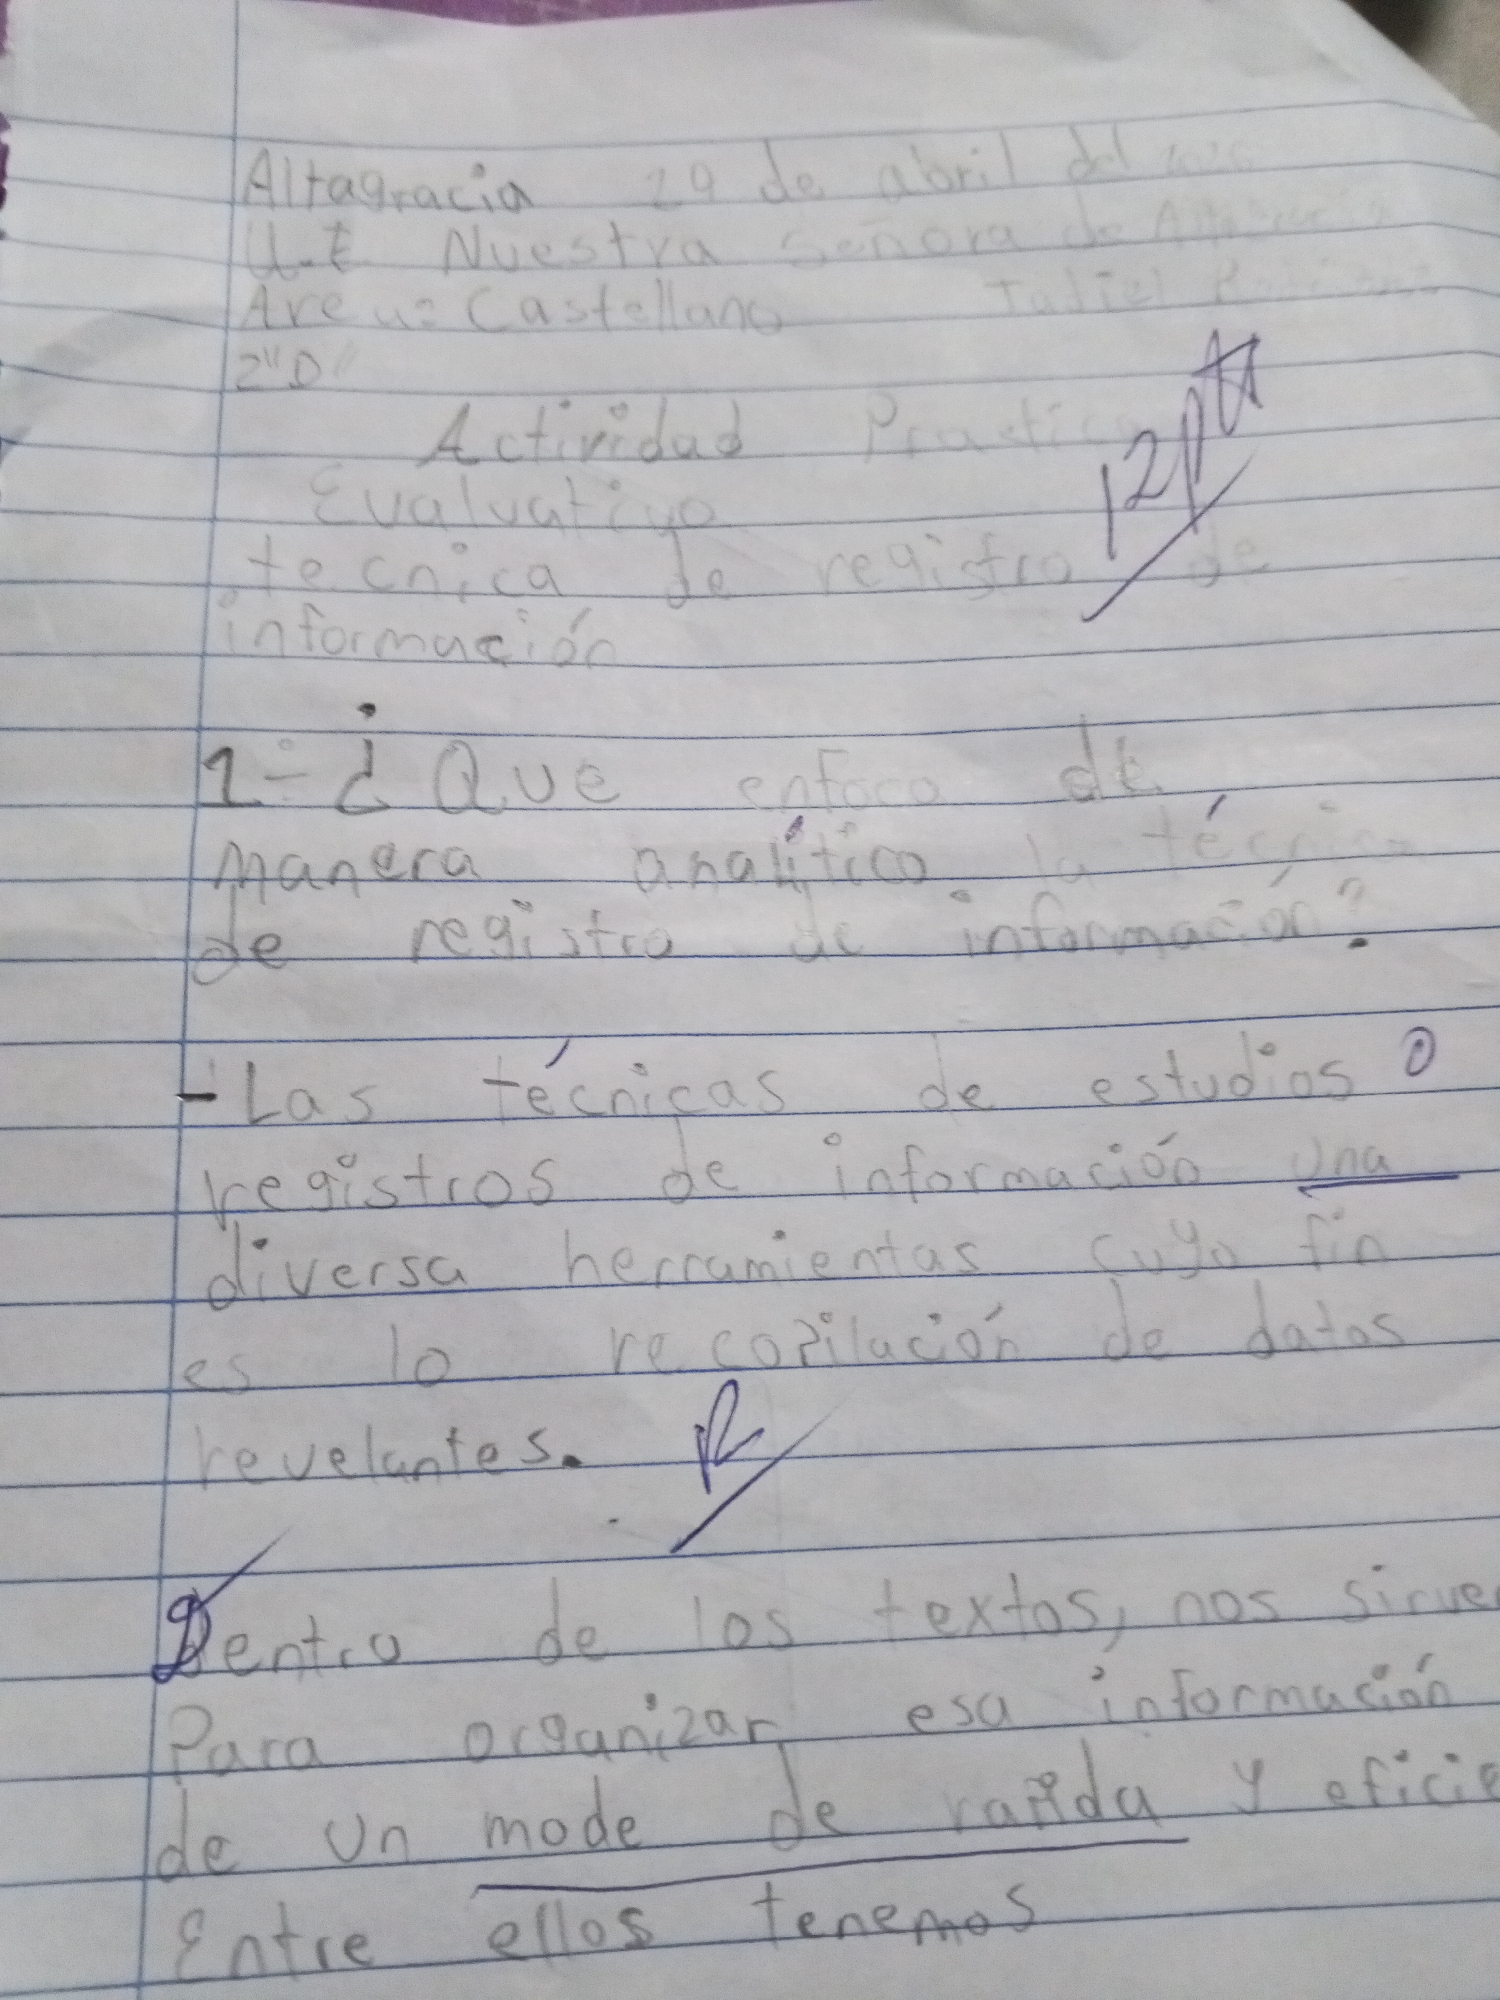 Altagracia 29 de abril del
U.E Nuestra Señora de Altagracia
Area: Castellano
2"D"
12pts
Actividad Practica
Evaluativo
tecnica de registro de
información
1- ¿Que enfoca de
manera analítico la técnica
de registro de información?
-Las técnicas de estudios o
registros de información una
diversa herramientas cuyo fin
es lo recopilación de datos
revelantes.
Dentro de los textos, nos sirve
Para organizar esa información
de un mode de rapida y eficie
Entre ellos tenemos